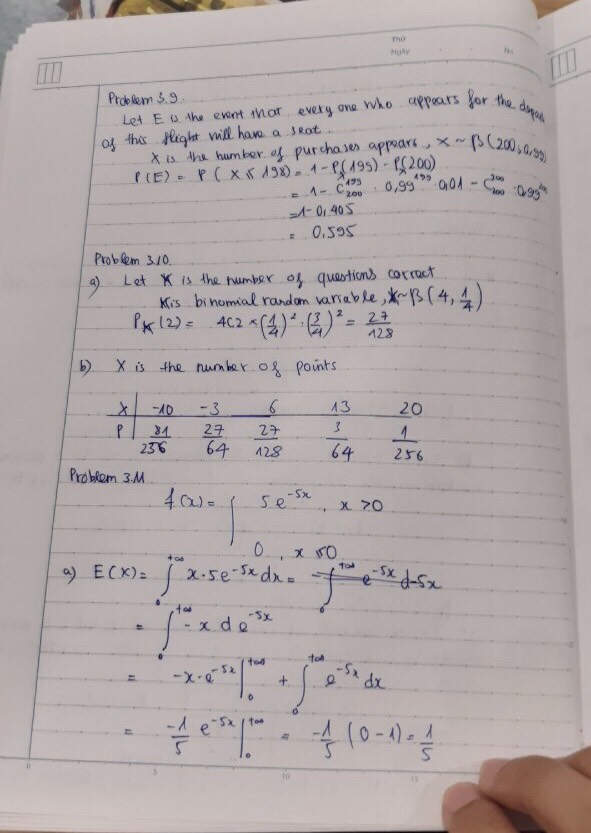 Thứ
Ngày No.
Problem 3.9.
Let E is the event that every one who appears for the depart
of this flight will have a seat.
X is the number of purchases appears, X ~ B(200; 0,99)
P(E) = P(X ≤ 198) = 1 - Pₓ(199) - Pₓ(200)
= 1 - C₂₀₀¹⁹⁹ · 0,99¹⁹⁹ · 0,01 - C₂₀₀²⁰⁰ · 0,99²⁰⁰
= 1 - 0,405
= 0,595
Problem 3.10.
a) Let K is the number of questions correct
K is binomial random variable, K ~ B(4, 1/4)
P_K(2) = 4C2 × (1/4)² · (3/4)² = 27/128
b) X is the number of points
X -10 -3 6 13 20
P 81/256 27/64 27/128 3/64 1/256
Problem 3.11
f(x) = { 5e^(-5x), x > 0
0, x ≤ 0
a) E(X) = ∫₀^(+∞) x · 5e^(-5x) dx = -∫₀^(+∞) e^(-5x) d-5x
= ∫₀^(+∞) - x d e^(-5x)
= -x · e^(-5x) |₀^(+∞) + ∫₀^(+∞) e^(-5x) dx
= -1/5 e^(-5x) |₀^(+∞) = -1/5 (0 - 1) = 1/5
0 5 10 15